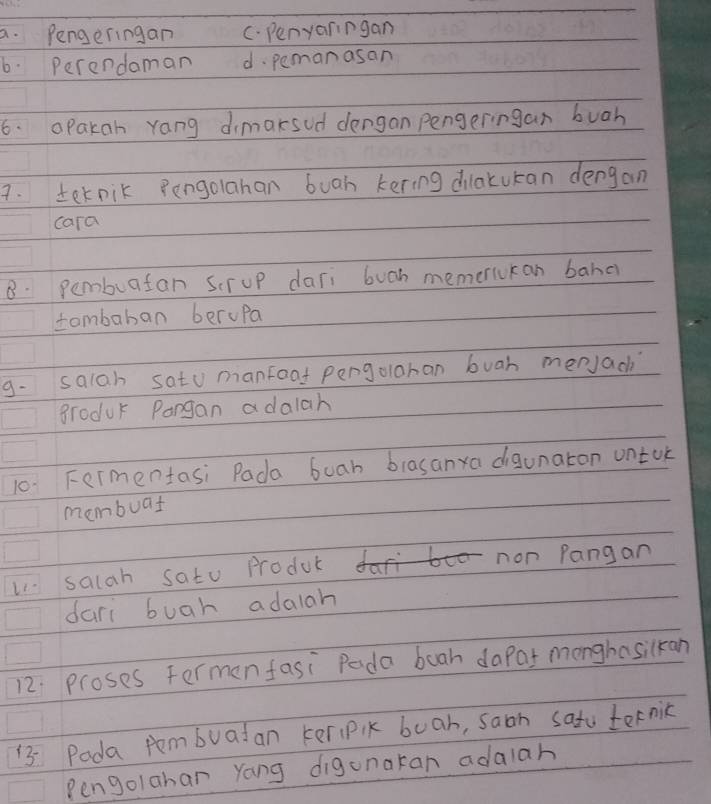 a. Pengeringan c. Penyaringan
b. Perendaman d. pemanasan
6. apakah yang dimaksud dengan pengeringan buah
7. teknik Pengolahan buah kering dilakukan dengan
cara
8. pembuatan sirup dari buah memerlukan bahan
tambahan berupa
9. salah satu manfaat pengolahan buah menjadi
produk Pangan adalah
10. Fermentasi Pada buah biasanya digunakan untuk
membuat
11. salah satu Produk dari bua non Pangan
dari buah adalah
12. proses Fermentasi Pada buah dapat menghasilkan
13. Pada Pembuatan keripik buah, salah satu teknik
Pengolahan yang digunakan adalah